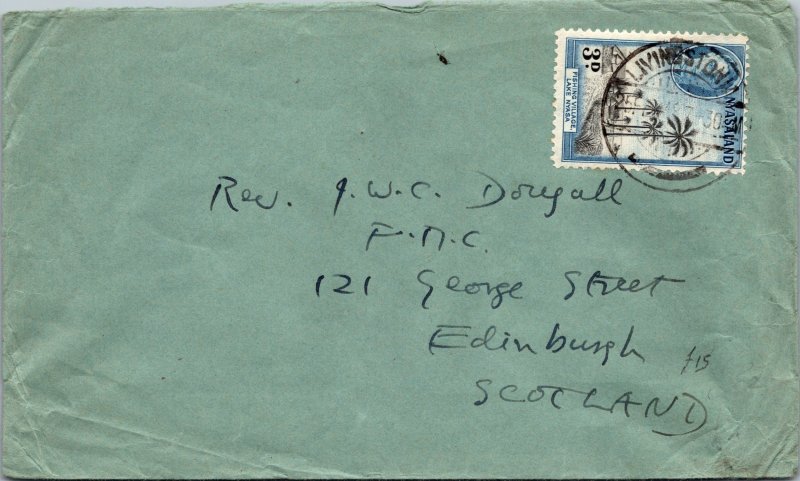 3D.
FISHING VILLAGE,
LAKE NYASA
NYASALAND
LIVINGSTON
Rev. J.W.C. Dougall
F.M.C.
121 George Street
Edinburgh
£15
SCOTLAND